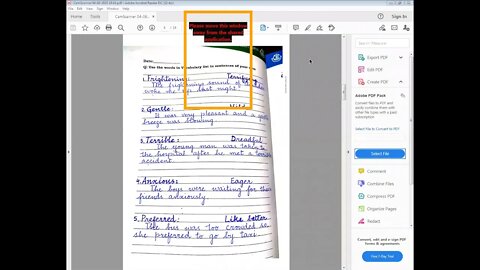 Please move this window
away from the shared
application.
Sign In
Date:
Q: Use the words in Vocabulary list in sentences of your own.
1. Frightening: Terrify
The frightening sound of
woke me up last night.
2. Gentle: Mild
It was very pleasant and a gentle
breeze was blowing.
3. Terrible: Dreadful
The young man was taken to
the hospital after he met a terrible
accident.
4. Anxious: Eager
The boys were waiting for their
friends anxiously.
5. Preferred: Like better
The bus was too crowded so
she preferred to go by taxi.
Export PDF
Edit PDF
Create PDF
Adobe PDF Pack
Convert files to PDF and
easily combine them with
other file types with a paid
subscription.
Select file to Convert to PDF
Select File
Comment
Combine Files
Compress PDF
Organize Pages
Redact
Convert, edit and e-sign PDF
forms & agreements
Free 7-Day Trial